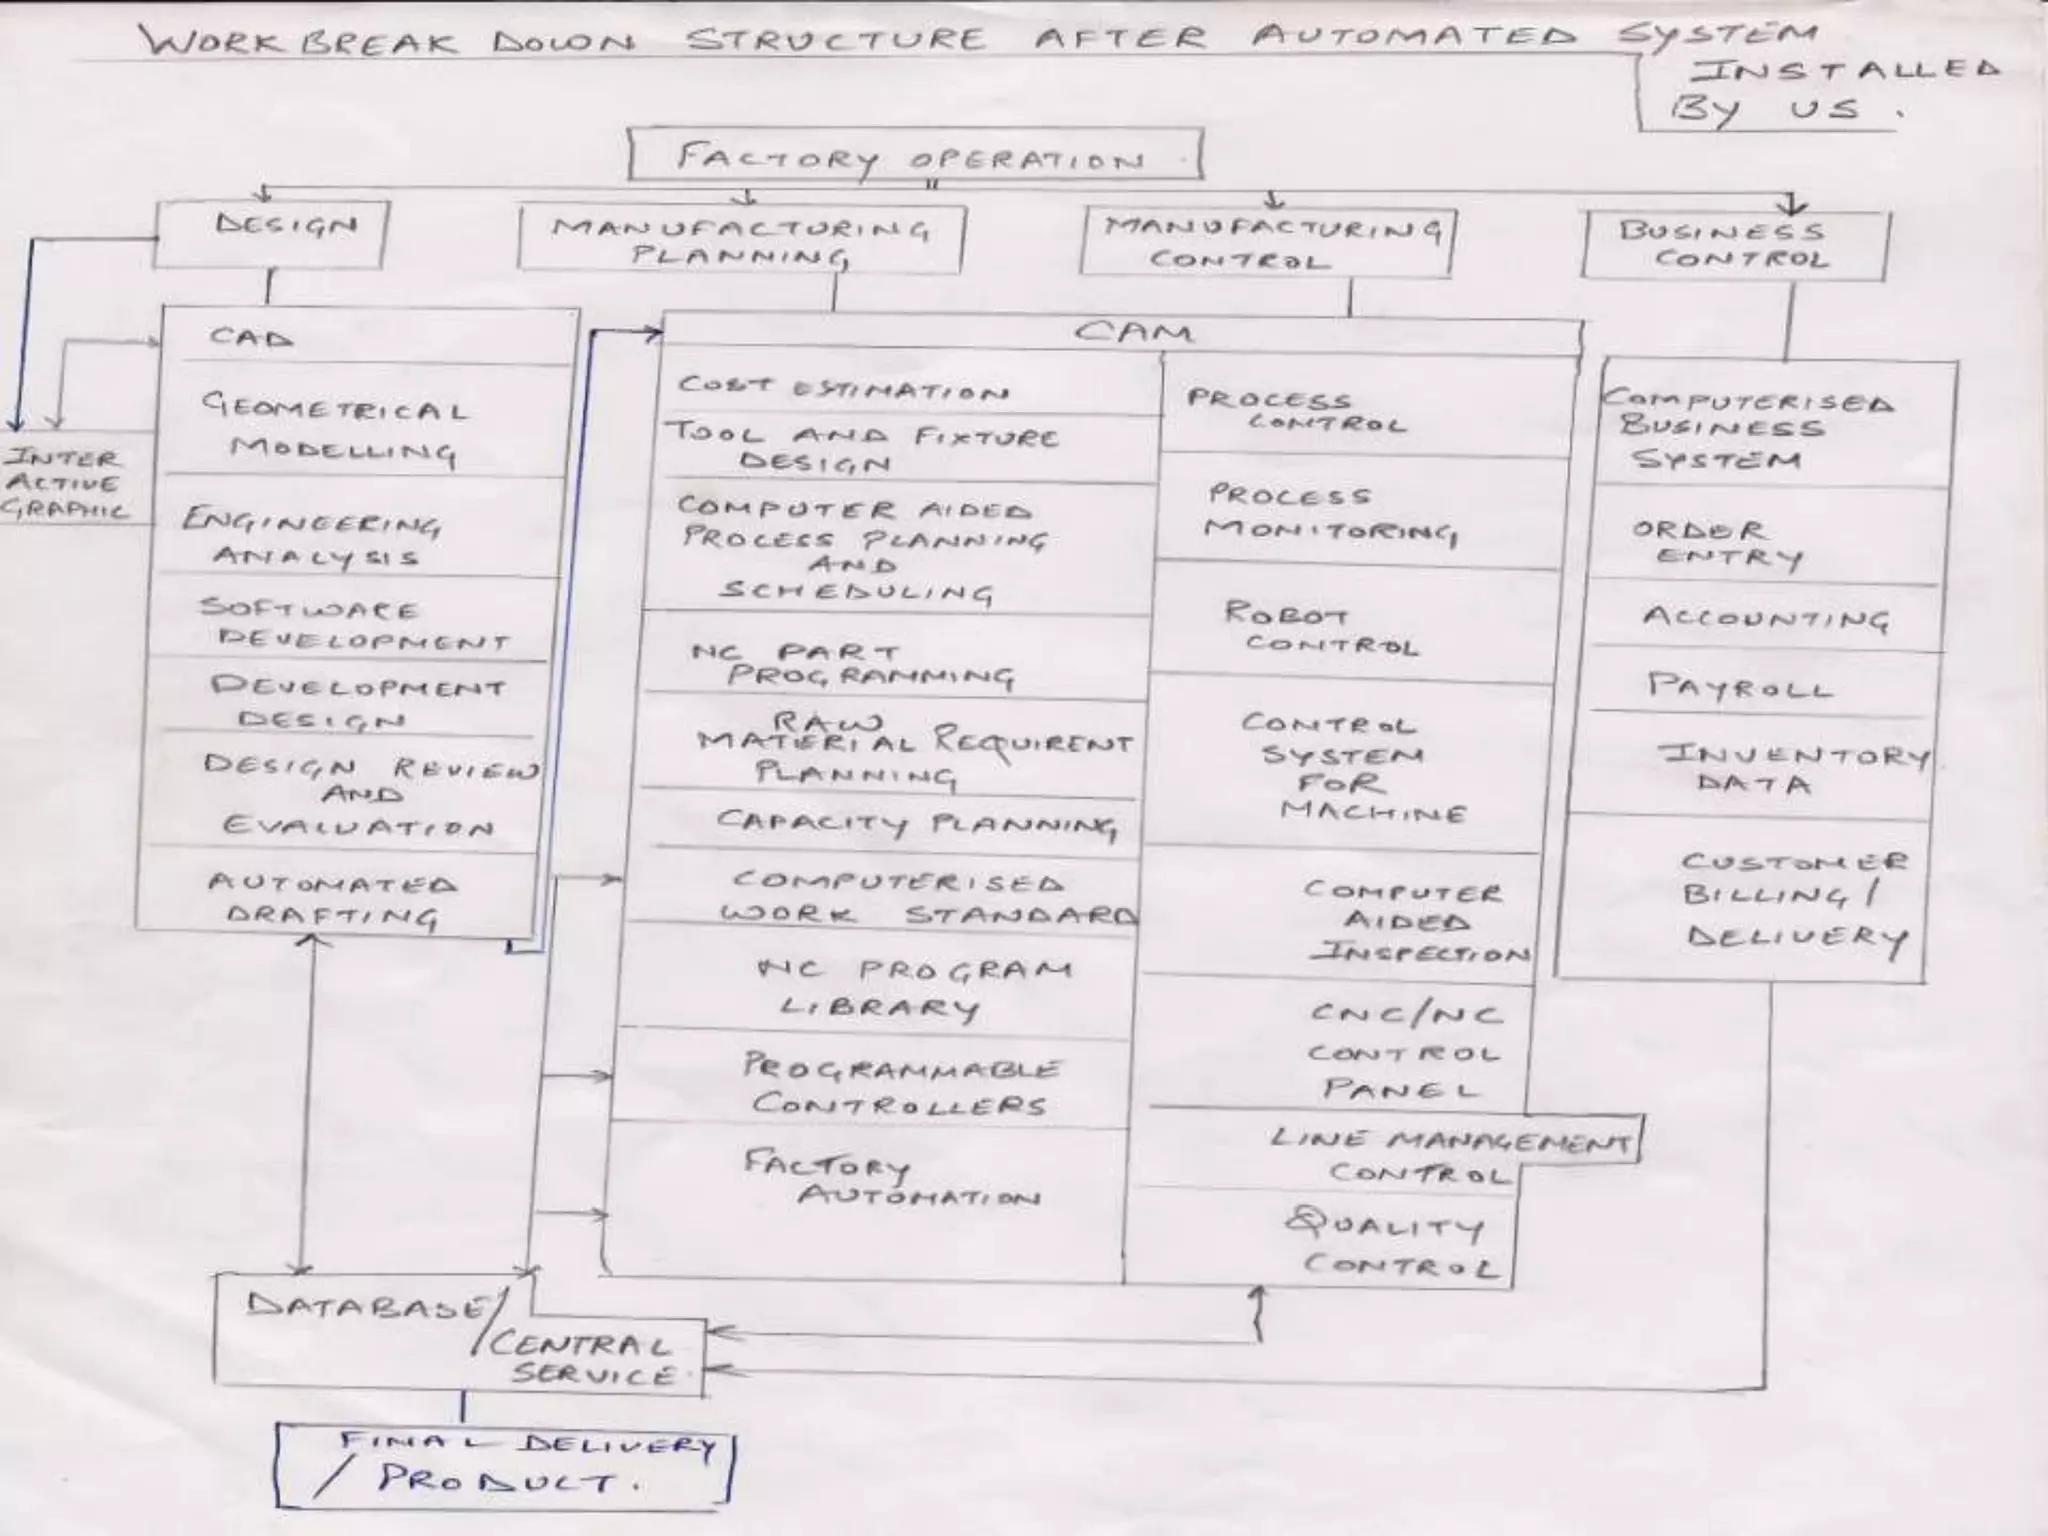 WORK BREAK DOWN STRUCTURE AFTER AUTOMATED SYSTEM
INSTALLED
BY US.
FACTORY OPERATION
DESIGN
MANUFACTURING
PLANNING
MANUFACTURING
CONTROL
BUSINESS
CONTROL
INTER
ACTIVE
GRAPHIC
CAD
GEOMETRICAL
MODELLING
ENGINEERING
ANALYSIS
SOFTWARE
DEVELOPMENT
DEVELOPMENT
DESIGN
DESIGN REVIEW
AND
EVALUATION
AUTOMATED
DRAFTING
CAM
COST ESTIMATION
TOOL AND FIXTURE
DESIGN
COMPUTER AIDED
PROCESS PLANNING
AND
SCHEDULING
NC PART
PROGRAMMING
RAW
MATERIAL REQUIRENT
PLANNING
CAPACITY PLANNING
COMPUTERISED
WORK STANDARD
NC PROGRAM
LIBRARY
PROGRAMMABLE
CONTROLLERS
FACTORY
AUTOMATION
PROCESS
CONTROL
PROCESS
MONITORING
ROBOT
CONTROL
CONTROL
SYSTEM
FOR
MACHINE
COMPUTER
AIDED
INSPECTION
CNC/NC
CONTROL
PANEL
LINE MANAGEMENT
CONTROL
QUALITY
CONTROL
COMPUTERISED
BUSINESS
SYSTEM
ORDER
ENTRY
ACCOUNTING
PAYROLL
INVENTORY
DATA
CUSTOMER
BILLING/
DELIVERY
DATABASE/
CENTRAL
SERVICE.
FINAL DELIVERY
/ PRODUCT.